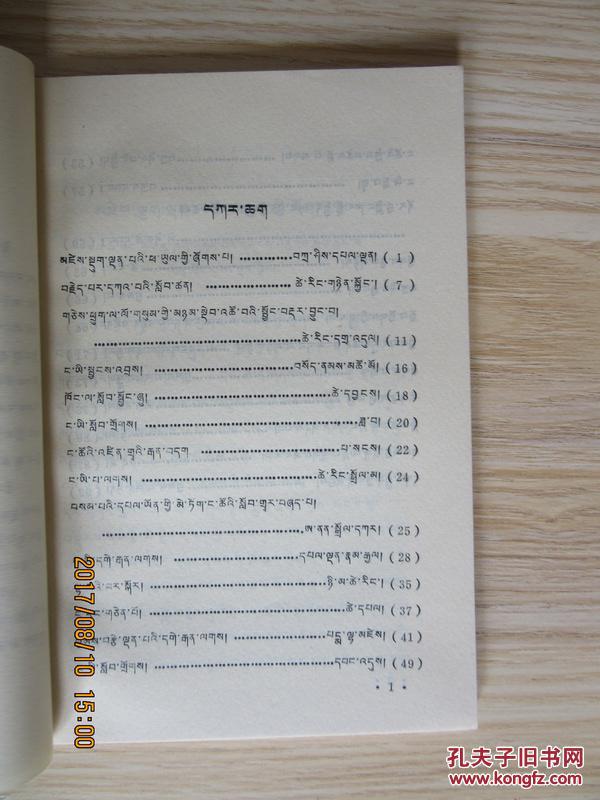 དཀར་ཆག
མཛེས་སྡུག་ལྡན་པའི་ཕ་ཡུལ་གྱི་སྟོགས་པ། ············ བཀྲ་ཤིས་དཔལ་ལྡན། ( 1 )
བརྗེད་པར་དཀའ་བའི་སློབ་ཚན། ···················· ཚེ་རིང་གཉེན་སྐྱོང་། ( 7 )
གཅེས་ཕྲུག་ལ་ལོ་གསུམ་གྱི་མཉམ་སྡེབ་འཚོ་བའི་སྦྱོང་བརྡར་བྱུང་བ།
···································· ཚེ་རིང་དགྲ་འདུལ། ( 11 )
ང་ཡི་སྦྱངས་འབྲས། ·························· བསོད་ནམས་མཚོ་མོ། ( 16 )
ཁོང་ལ་སློབ་སྦྱོང་ཞུ། ································ ཚེ་དབྱངས། ( 18 )
ང་ཡི་སློབ་གྲོགས། ···································· ཟླ་བ། ( 20 )
ང་ཚོའི་འཛིན་གྲྭའི་རྒན་བདག ························ པ་སངས། ( 22 )
ང་ཡི་པ་ལགས། ······························ ཚེ་རིང་སྒྲོལ་མ། ( 24 )
བསམ་པའི་དཔལ་ཡོན་གྱི་མེ་ཏོག་ང་ཚོའི་སློབ་གྲྭར་བཞད་པ།
···································· ཨ་ནན་སྒྲོལ་དཀར། ( 25 )
དགེ་རྒན་ལགས། ···················· དཔལ་ལྡན་རྣམ་རྒྱལ། ( 28 )
བར་སྐོར། ······························ ཉི་མ་ཚེ་རིང་། ( 35 )
གཅེན་པོ། ·································· ཚེ་དཔལ། ( 37 )
བརྩེ་ལྡན་པའི་དགེ་རྒན་ལགས། ················ པདྨ་ལྷ་མཛེས། ( 41 )
སློབ་གྲོགས། ································ དབང་འདུས། ( 49 )
· 1 ·
2017/08/10 15:00
孔夫子旧书网
www.kongfz.com